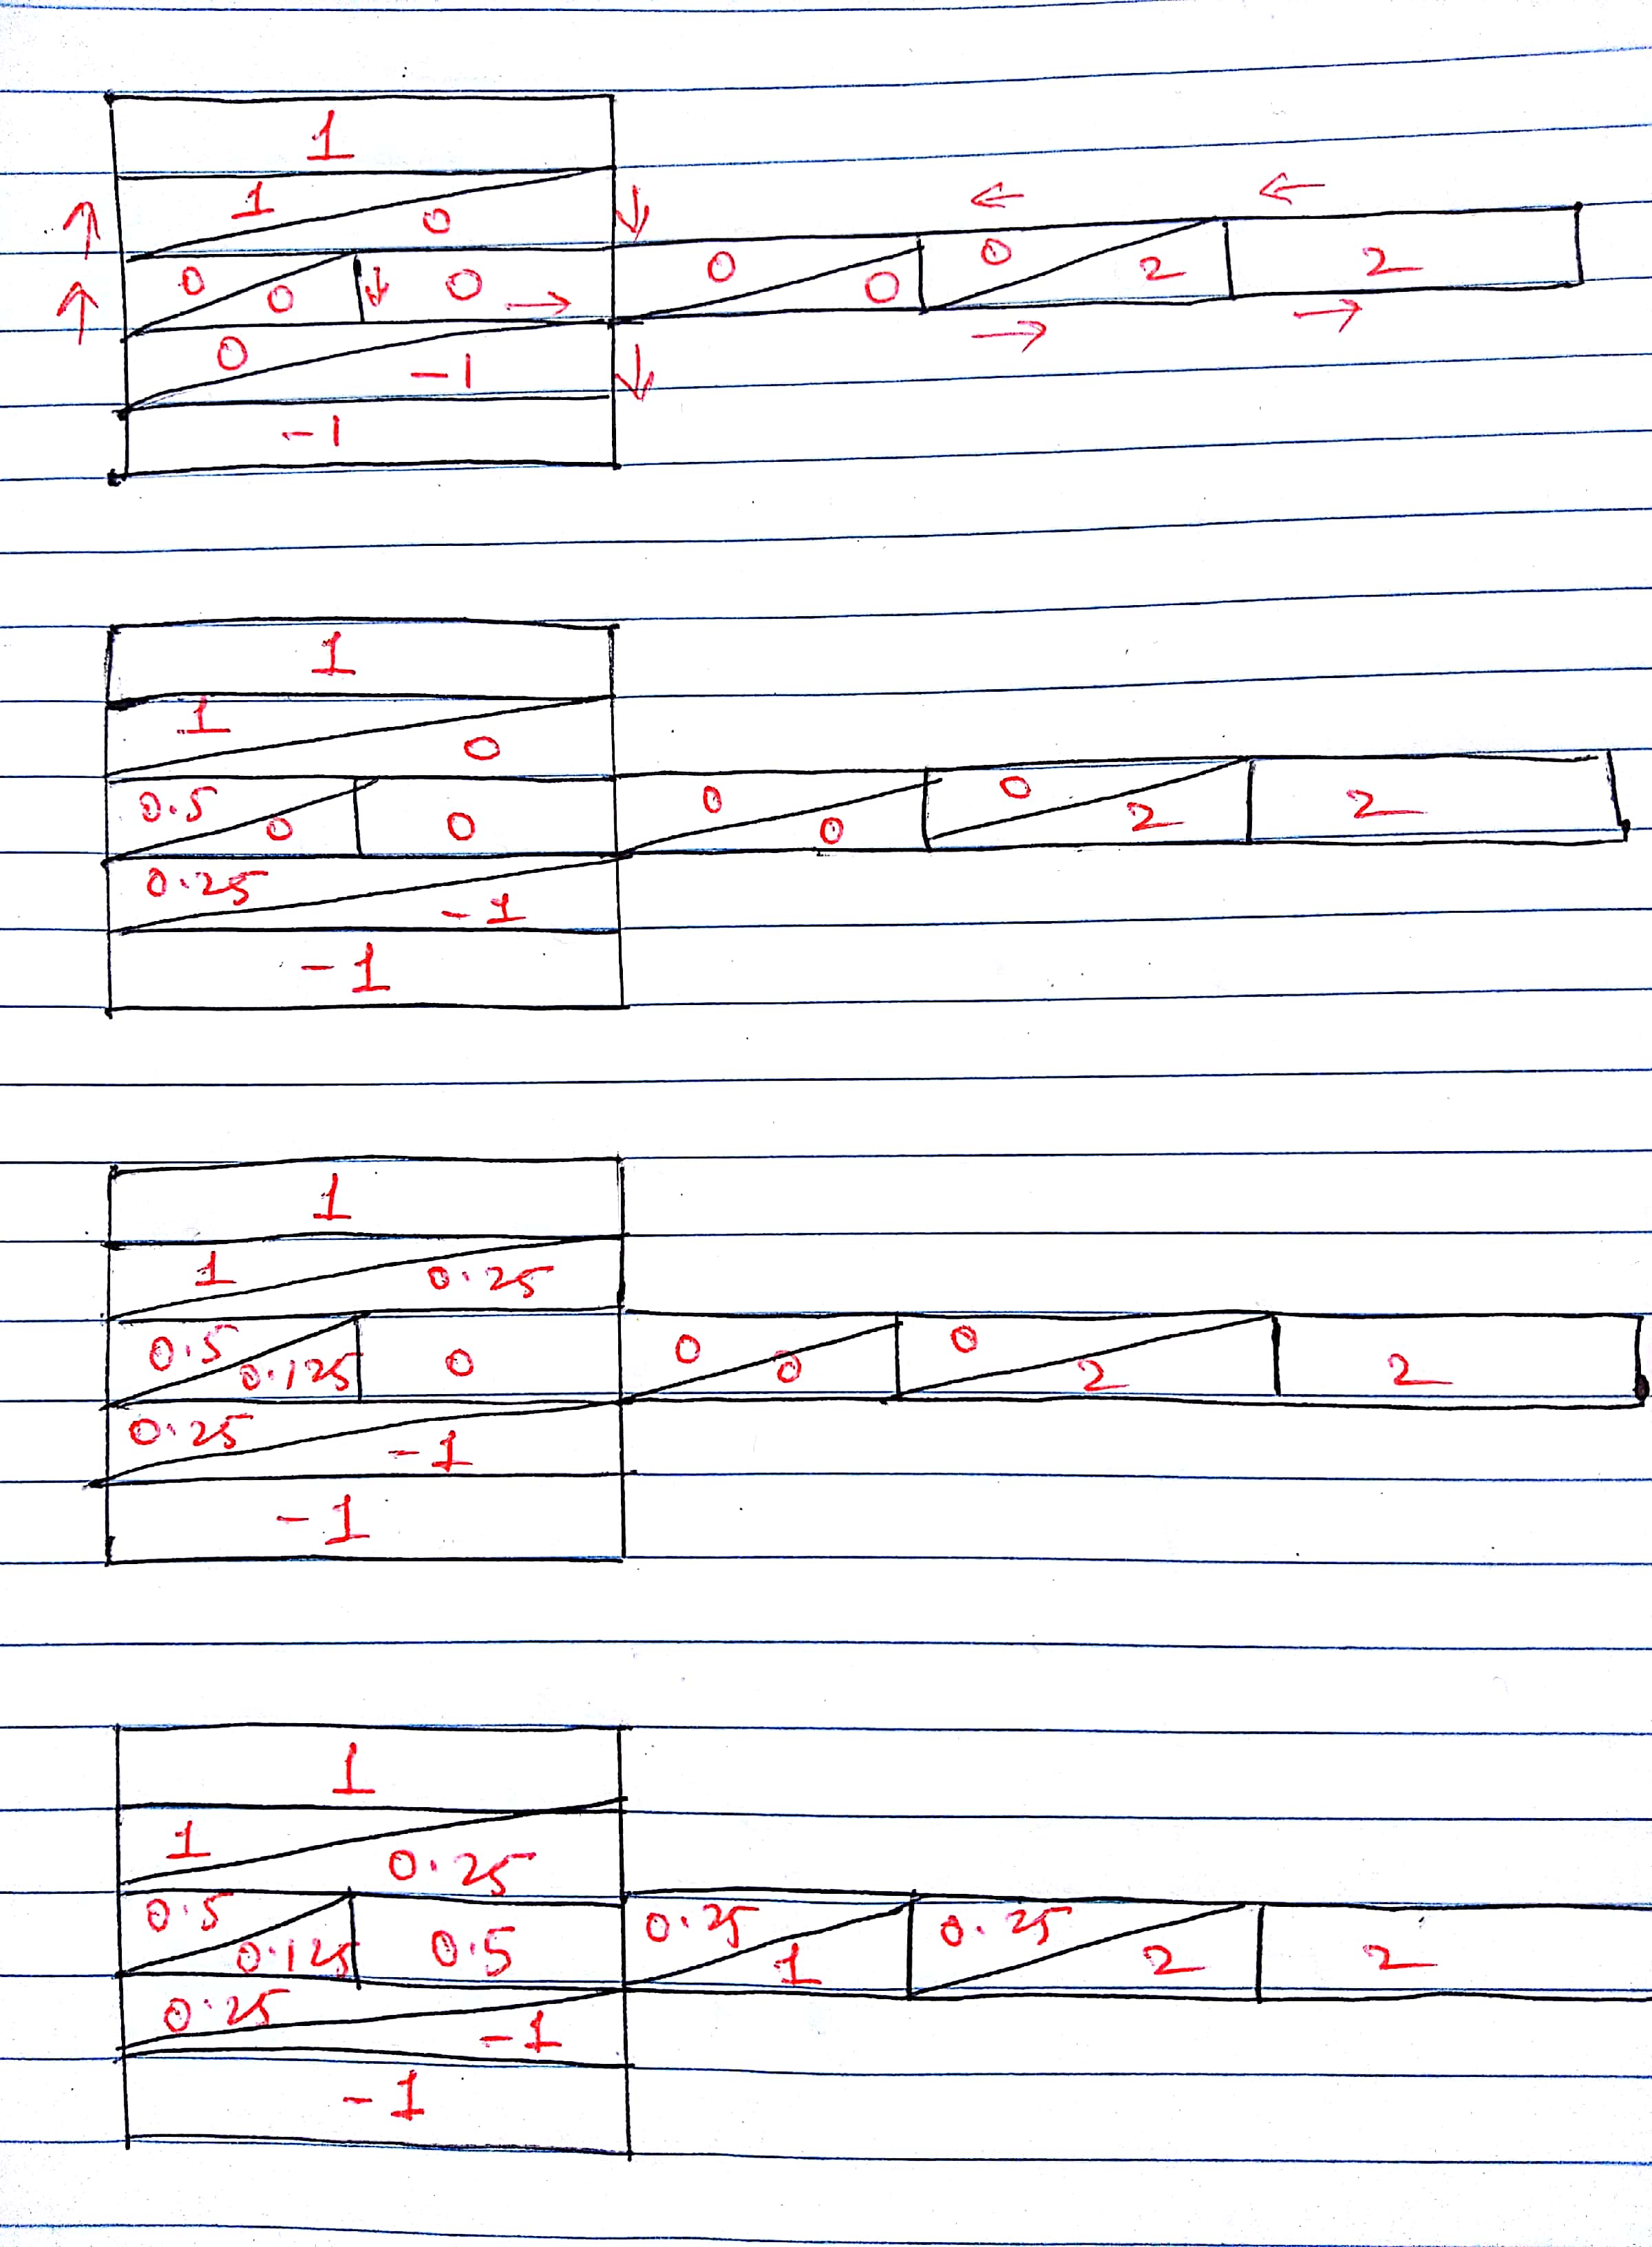 1
↓ ← ←
↑ 1 0
0 0 2 2
↑ 0 0 ↓ 0 → 0
0 → →
-1 ↓
-1
1
1
0
0.5 0 0
0 0 0 2 2
0.25
-1
-1
1
1 0.25
0.5 0 0
0.125 0 0 2 2
0.25
-1
-1
1
1
0.25
0.5 0.25 0.25
0.125 0.5 1 2 2
0.25
-1
-1